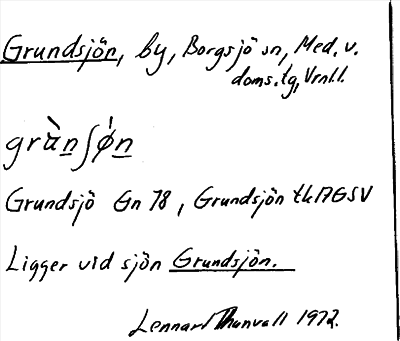 Grundsjön, by, Borgsjö sn, Med. v.
doms.tg, Vrnll.
grànʃǿn
Grundsjö Gn 78, Grundsjön tk17GSV
Ligger vid sjön Grundsjön.
Lennart Thunvall 1972.